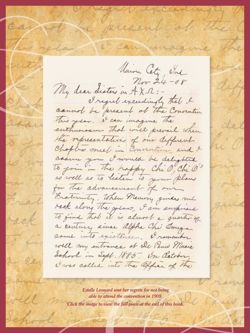 Union City, Ind.
Nov 24 - 08
My dear Sisters in A X Ω :-
I regret exceedingly that I
cannot be present at the Convention
this year. I can imagine the
enthusiasm that will prevail when
the representatives of our different
chapters meet in Convention, and I
assure you I would be delighted
to join in the happy "Chi O, Chi O"
as well as to listen to your plans
for the advancement of our
Fraternity. When Memory guides me
back along the years, I am surprised
to find that it is almost a quarter of
a century since Alpha Chi Omega
came into existence. I remember
well my entrance at De Pauw Music
School in Sept. 1885.
I was called into the office of the
Estelle Leonard sent her regrets for not being
able to attend the convention in 1908.
Click the image to view the full poem at the end of this book.